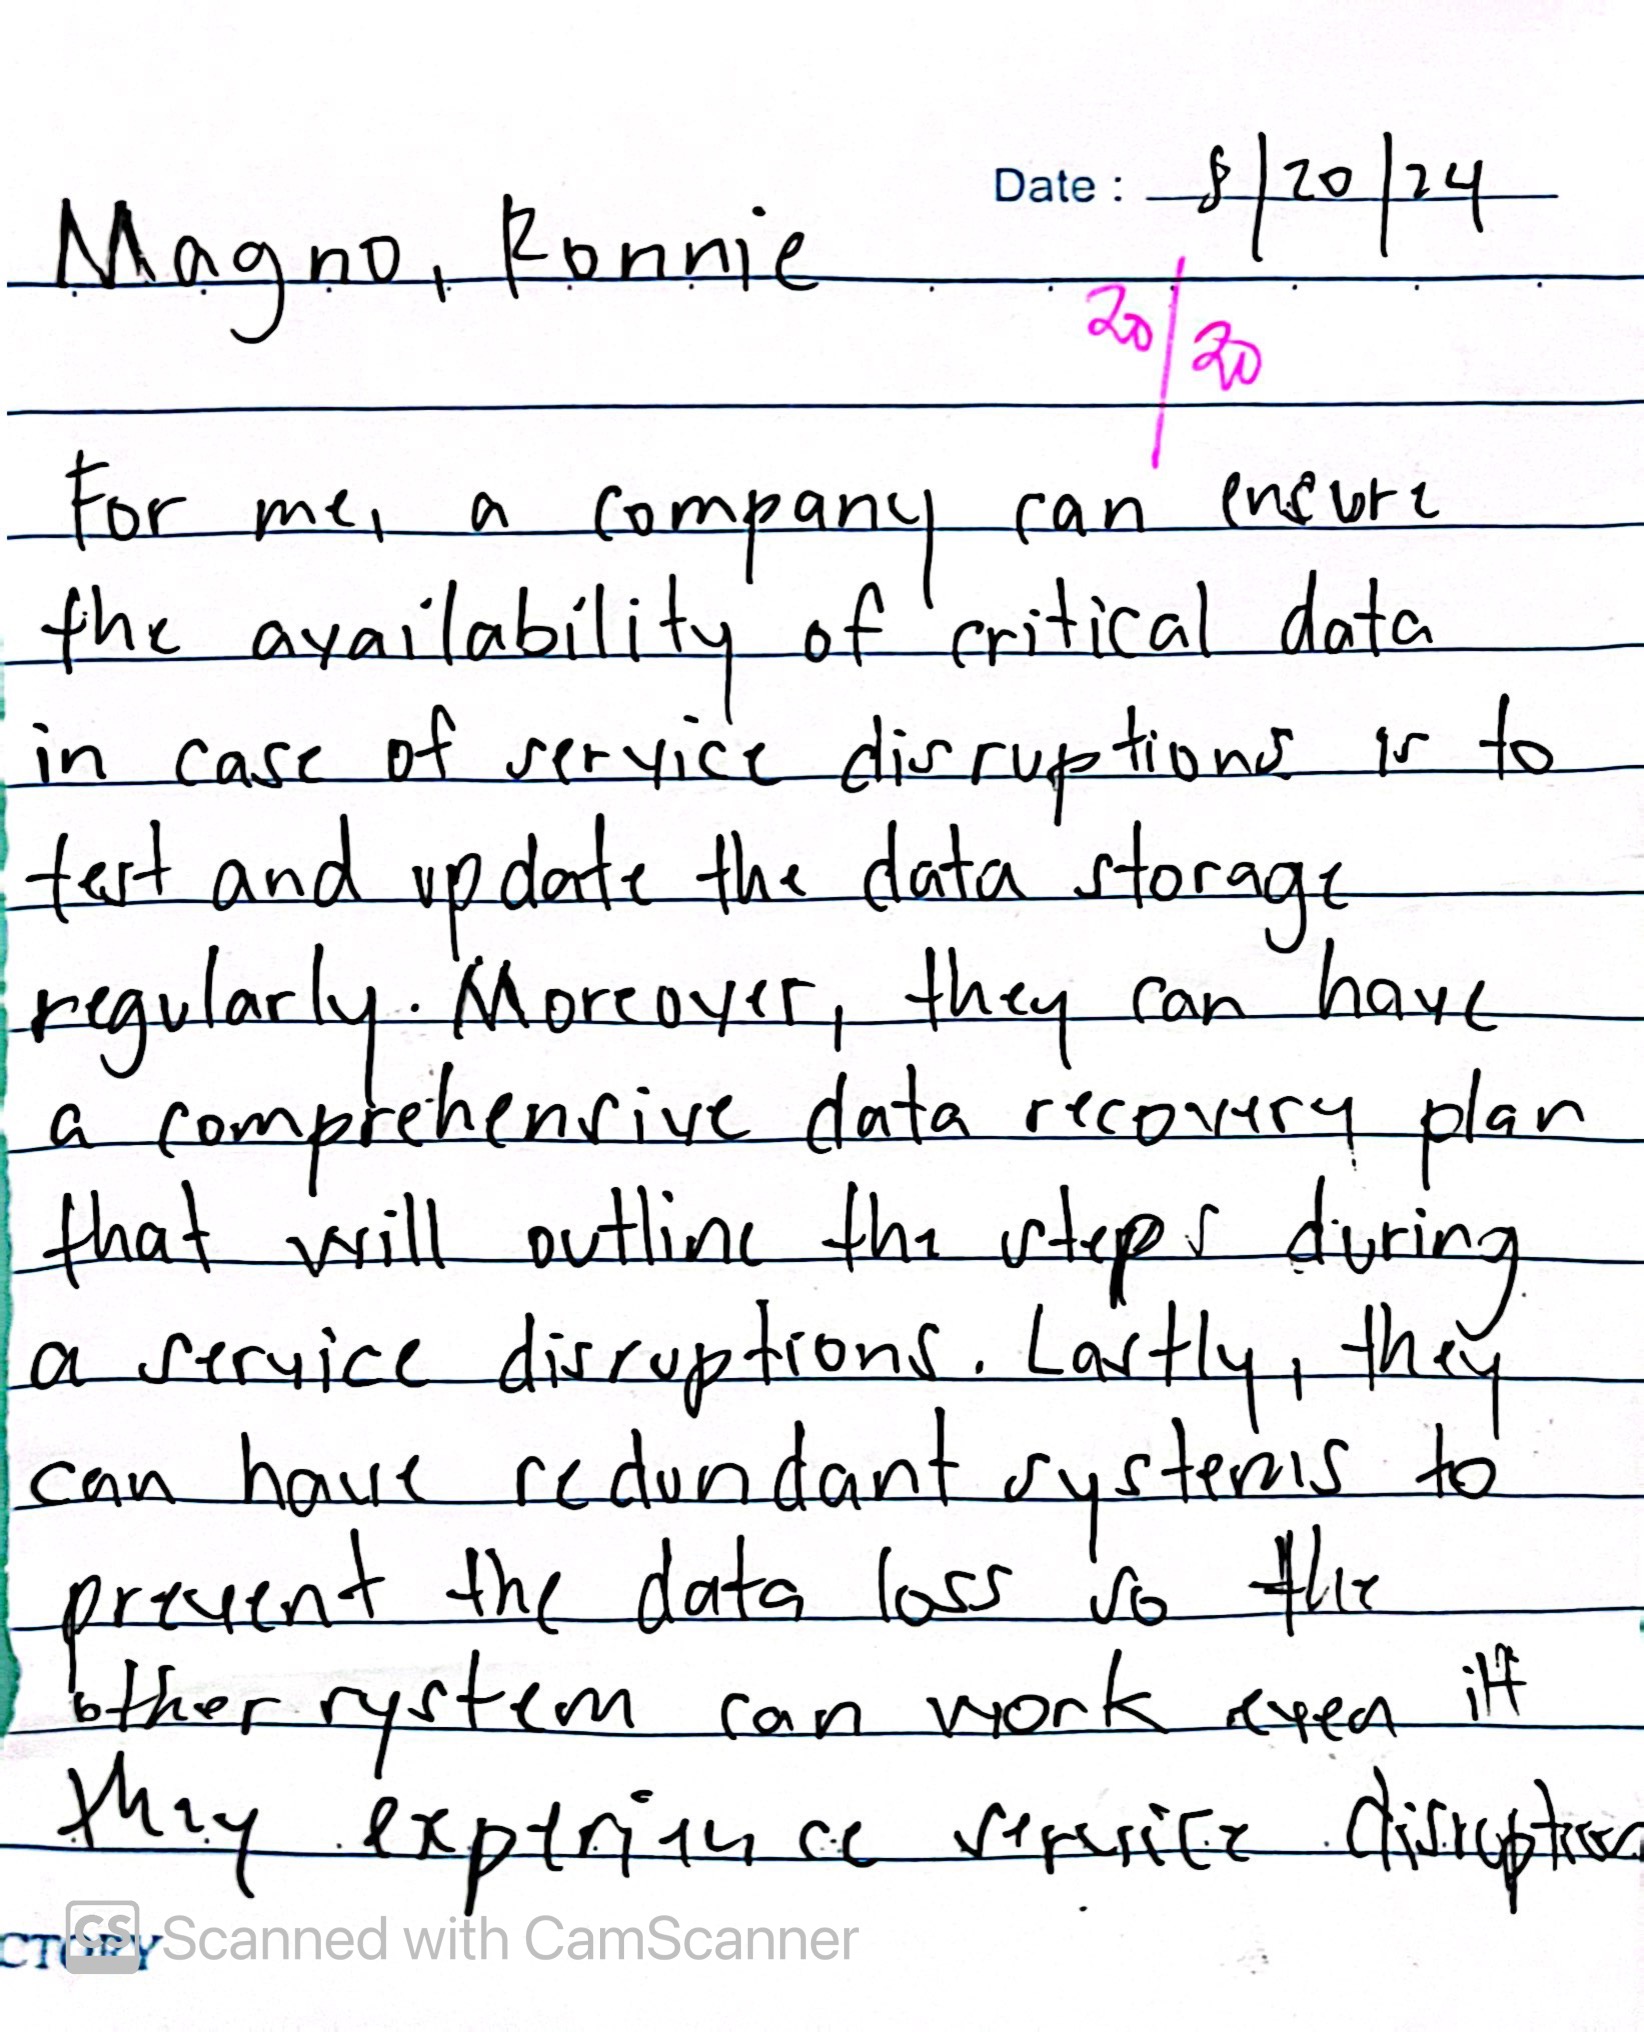 Date : 8/20/24
Magno, Ronnie
20/20
For me, a company can ensure
the availability of critical data
in case of service disruptions is to
test and update the data storage
regularly. Moreover, they can have
a comprehensive data recovery plan
that will outline the steps during
a service disruptions. Lastly, they
can have redundant systems to
prevent the data loss so the
other system can work even if
they experience service disruption
CTORY
CS Scanned with CamScanner